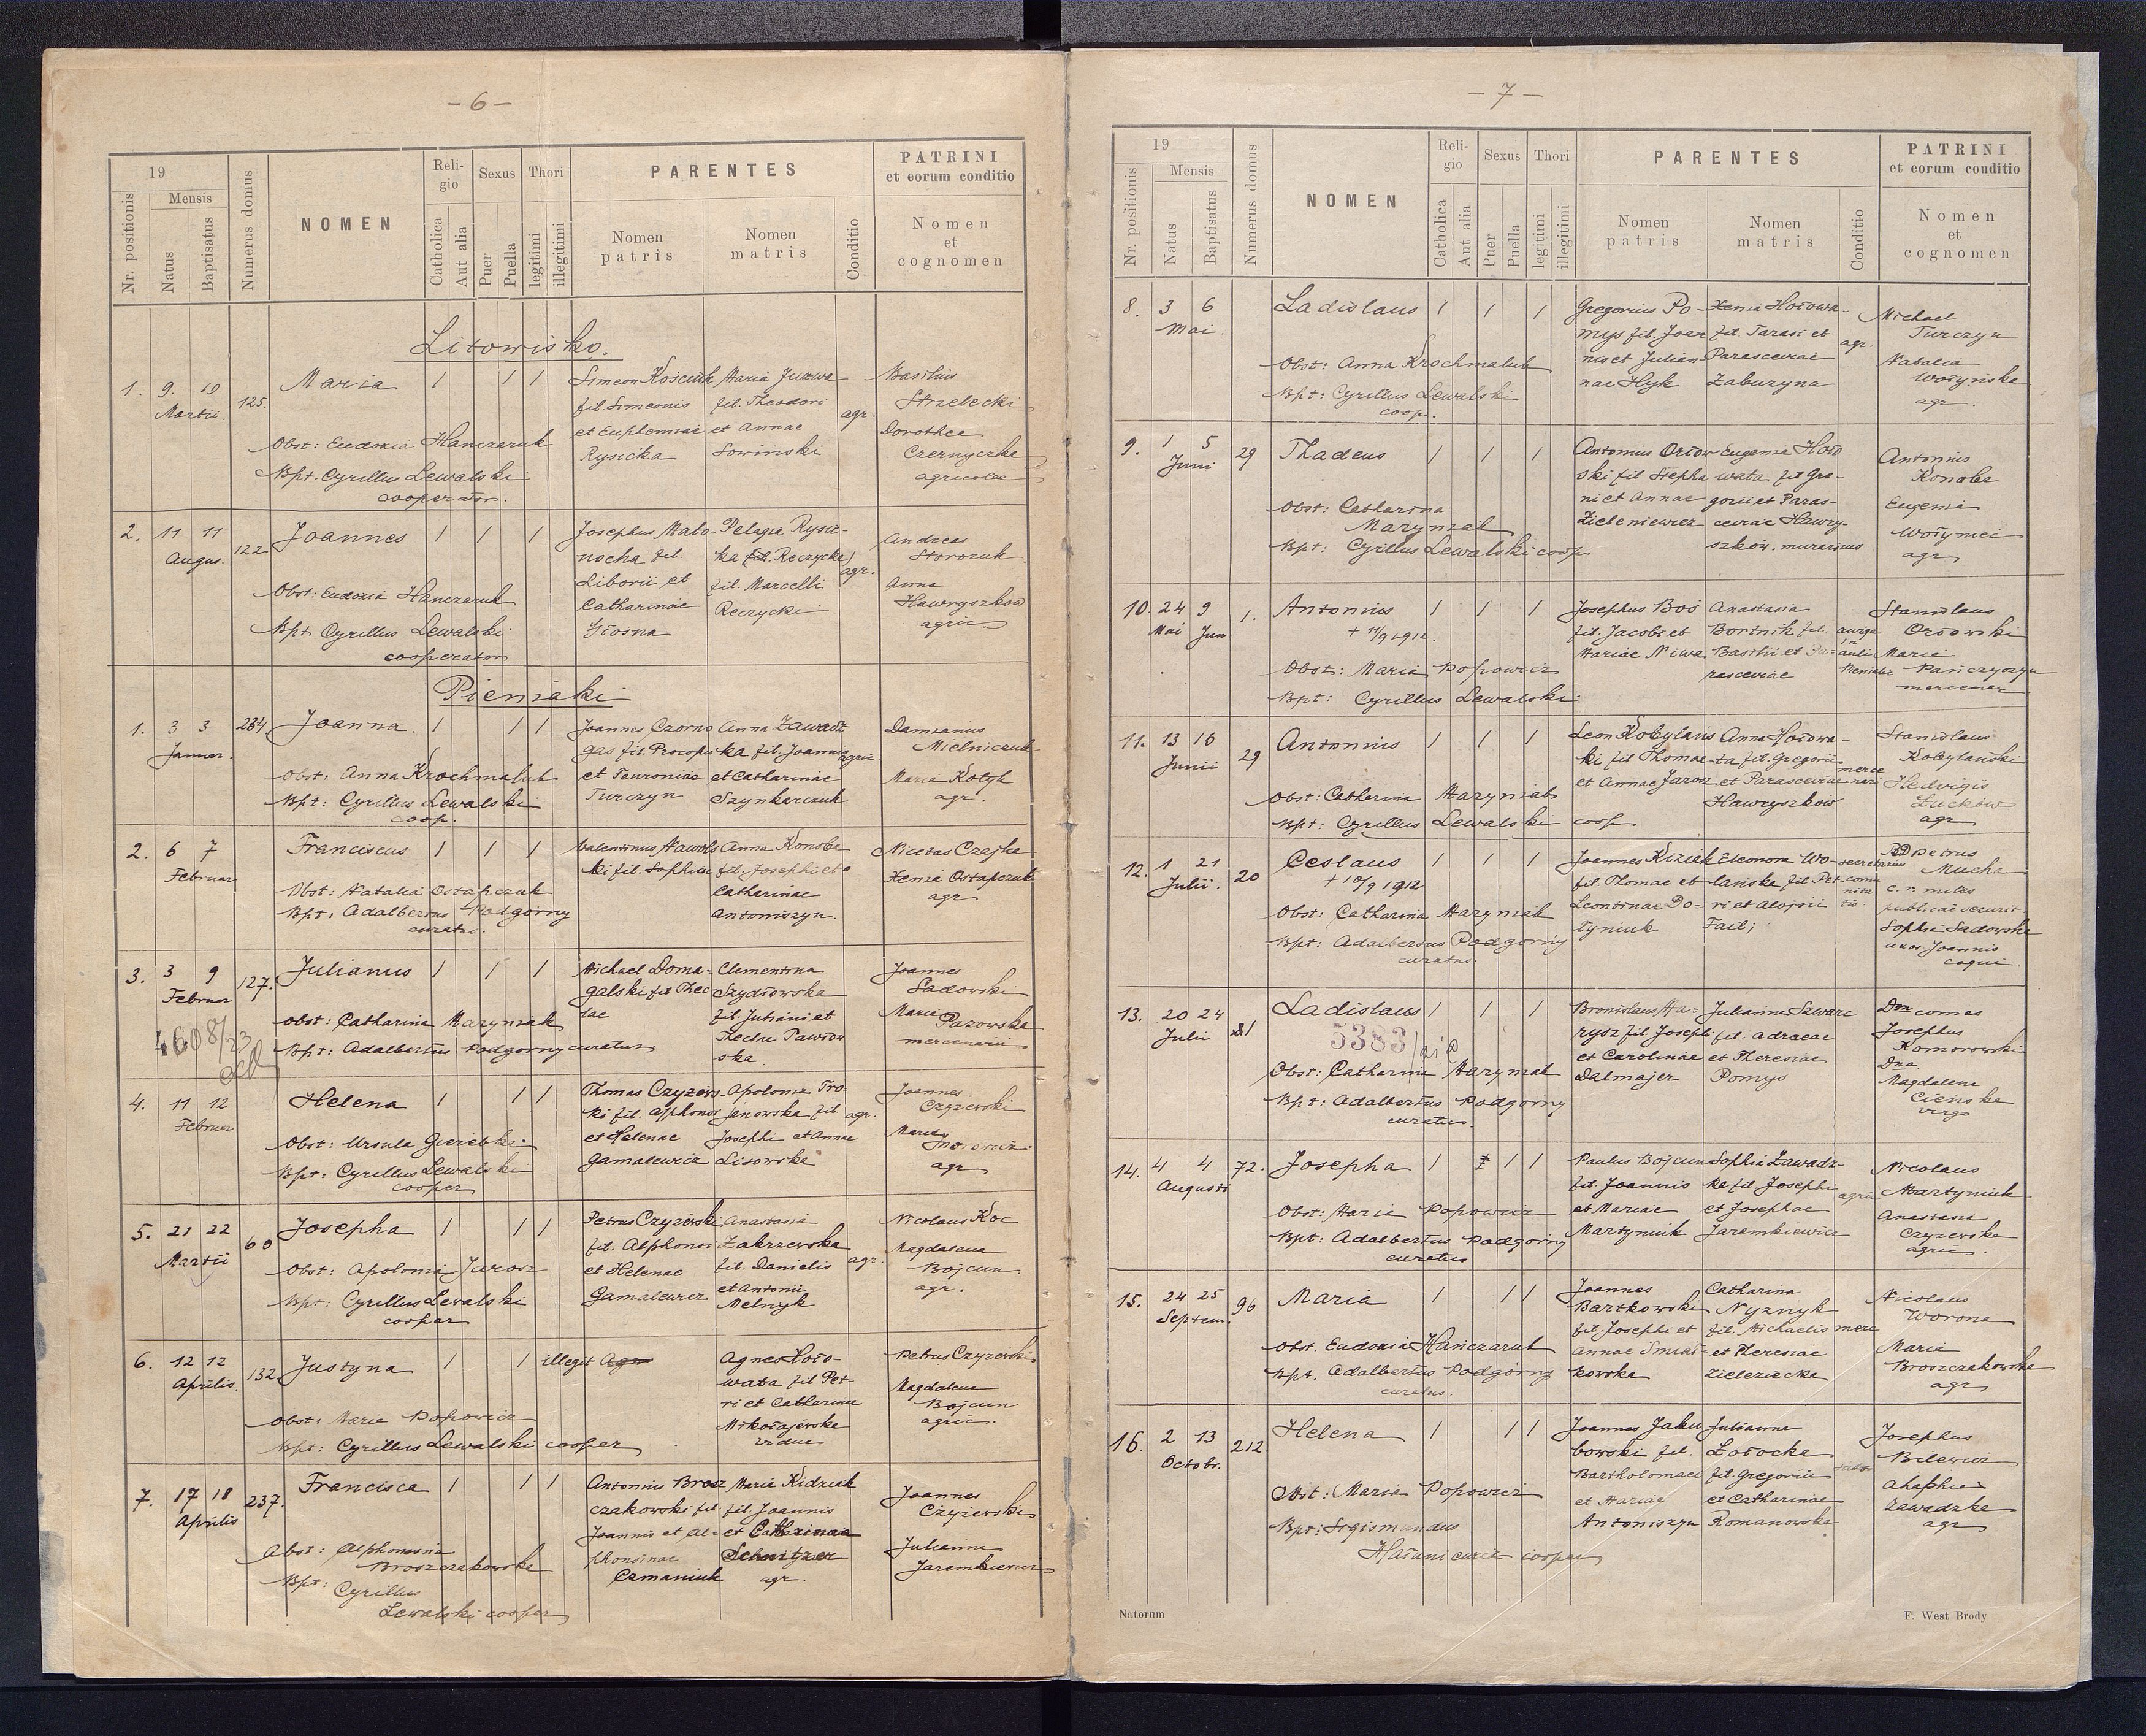 - 6 -
19
Nr. positionis
Mensis
Natus
Baptisatus
Numerus domus
NOMEN
Religio
Catholica
Aut alia
Sexus
Puer
Puella
Thori
legitimi
illegitimi
PARENTES
Nomen patris
Nomen matris
Conditio
PATRINI
et eorum conditio
Nomen
et
cognomen
Litowisko.
1. 9. 19 Martii. 125. Maria
Simeon Kościuk fil. Simeonis et Euphemiae Rysicka
Maria Juzwa fil. Theodori et Annae Sowiński
agr.
Basilius Strzelecki
Dorothea Czernyczka
agricolae
Obst: Eudoxia Hanczaruk
Bpt. Cyrillus Lewalski
cooperator.
2. 11 11 Augus. 122. Joannes
Josephus Nabonocha fil. Liborii et Catharinae
Pelagia Rysicka fil. Marcelli Reczycki
agr.
Andreas Storozuk
Anna Hawryszków
agric
Obst: Eudoxia Hanczaruk
Bpt. Cyrillus Lewalski
cooperator
Pieniaki
1. 3 3 Januar. 234 Joanna.
Joannes Czornogas fil. Procopi et Teuroniae Turczyn
Anna Zawadzka fil. Joannis et Catharinae Szynkarczuk
agric
Damianus Mielniczuk
Maria Kotyk
agr.
Obst: Anna Krochmaluk
Bpt: Cyrillus Lewalski
coop.
2. 6 7 Februar Franciscus
Valentinus Nawolski fil. Sophiae
Anna Konoba fil. Josephi et Catharinae Antoniszyn.
Nicetas Czajka
Xenia Ostapczuk
agr
Obst: Natalia Ostapczuk
Bpt: Adalbertus Podgórny
curatus.
3. 3 9 Februar 127. Julianus
Michael Domagalski fil Theclae
Clementina Szydłowska fil. Juliani et Theclae Pawłowska
Joannes Sadowski
Maria Pazowska
mercenarii
Obst: Catharina Maryniak
Bpt: Adalbertus Podgórny curatus
4608/23
4. 11 12 Februar Helena
Thomas Czyżewski fil. Alphonsi et Helenae Gamalewicz
Apolonia Trojanowska fil Josephi et Annae Lisowska
agr.
Joannes Czyżewski
Maria
agr
Obst: Ursula
Bpt: Cyrillus Lewalski
cooper
5. 21 22 Martii 60 Josepha
Petrus Czyżewski fil. Alphonsi et Helenae Gamalewicz
Anastasia Zakrzewska fil. Danielis et Antonii Melnyk
agr.
Nicolaus Koc
Magdalena Bojcun
agr.
Obst: Apolonia Jarosz
Bpt: Cyrillus Lewalski
cooper
6. 12 12 Aprilis. 132. Justyna
illegit
Agnes Hołowata fil Petri et Catharinae Mikołajewska
Petrus Czyżewski
Magdalena Bojcun
agric.
Obst: Maria Popowicz
Bpt: Cyrillus Lewalski cooper
7. 17 18 Aprilis 237. Francisca
Antonius Broszczakowski fil. Joannis et Alphonsinae Czmaniuk
Maria Kidziak fil. Joannis et Catharinae Schnitzer
agr.
Joannes Czyżewski
Julianna Jaremkiewicz
Obst: Alphonsina Broszczakowska
Bpt: Cyrillus
Lewalski cooper
- 7 -
19
Nr. positionis
Mensis
Natus
Baptisatus
Numerus domus
NOMEN
Religio
Catholica
Aut alia
Sexus
Puer
Puella
Thori
legitimi
illegitimi
PARENTES
Nomen patris
Nomen matris
Conditio
PATRINI
et eorum conditio
Nomen
et
cognomen
8. 3 6 Mai. Ladislaus
Gregorius Pomys fil. Joannis et Juliannae Hyk
Xenia Hołowa- fil. Tarasi et Parasceviae Zaburyna
agr.
Michael Turczyn
Natalia Wołyńska
agr.
Obst: Anna Krochmaluk
Bpt: Cyrillus Lewalski
coop.
9. 1 5 Juni 29 Thadeus
Antonius Orłowski fil Stephani et Annae Zieleniewicz
Eugenia Hołowata fil Gregorii et Parasceviae Hawryszków. murarius
Antonius Konoba
Eugenia Wołyniec
agr
Obst: Catharina
Maryniak
Bpt: Cyrillus Lewalski coop
10. 24 9 Mai Jun 1. Antonius
+ 11/9 1912.
Josephus Boś fil. Jacobi et Mariae Niwa
Anastasia Bortnik fil. Basilii et Parasceviae
Stanislaus Orłowski
Maria Pańczyszyn
mercenar
Obst: Maria Popowicz
Bpt: Cyrillus Lewalski
11. 13 16 Junii 29 Antonius
Leon Kobylański fil Thomae et Annae Jarosz
Anna Hołowata fil. Gregorii et Parasceviae Hawryszków
mercenarii
Stanislaus Kobylański
Hedvigis Łuckow
agr
Obst: Catharina Maryniak
Bpt: Cyrillus Lewalski coop
12. 1 21 Julii. 20 Ceslaus
+ 10/9 1912
Joannes Kiziak fil. Thomae et Leontinae Dołyniuk
Eleonora Wolańska fil Petri et Alojsii Fail;
secretarius
Petrus Mucha
c. r. miles publicae securit
Sophia Sadowska uxor Joannis coqui.
Obst: Catharina Maryniak
Bpt: Adalbertus Podgórny
curatus.
13. 20 24 Julii 81 Ladislaus
5383
Bronislaus Harysz fil. Josephi et Carolinae Dalmajer
Julianna Szwarc fil. Adraeae et Theresiae Pomys
Dnn comes Josephus Komorowski
Dna Magdalena Cieńska
virgo
Obst: Catharina Maryniak
Bpt: Adalbertus Podgórny
curatus.
14. 4 4 Augusti 72. Josepha
Paulus Bojcun fil. Joannis et Mariae Martyniuk
Sophia Zawadzka fil Josephi et Josephae Jaremkiewicz
agric
Nicolaus Martyniuk
Anastasia Czyżewska
agric.
Obst: Maria Popowicz
Bpt: Adalbertus Podgórny
curatus
15. 24 25 Septem. 96 Maria
Joannes Bartkowski fil. Josephi et Annae
Catharina Nyznyk fil. Michaelis et Theresiae Zieleziecka
merc
Nicolaus Worona
Maria Broszczakowska
agr
Obst. Eudoxia Hanczaruk
Bpt. Adalbertus Podgórny
curatus.
16. 2 13 Octobr. 212 Helena
Joannes Jakubowski fil. Bartholomaei et Mariae Antoniszyn
Julianna Łotocka fil. Gregorii et Catharinae Romanowska
Josephus Bilewicz
Ahaphia Zawadzka
agr
Obst: Maria Popowicz
Bpt: Sigismundus
Hałuniewicz cooper
Natorum
F. West Brody